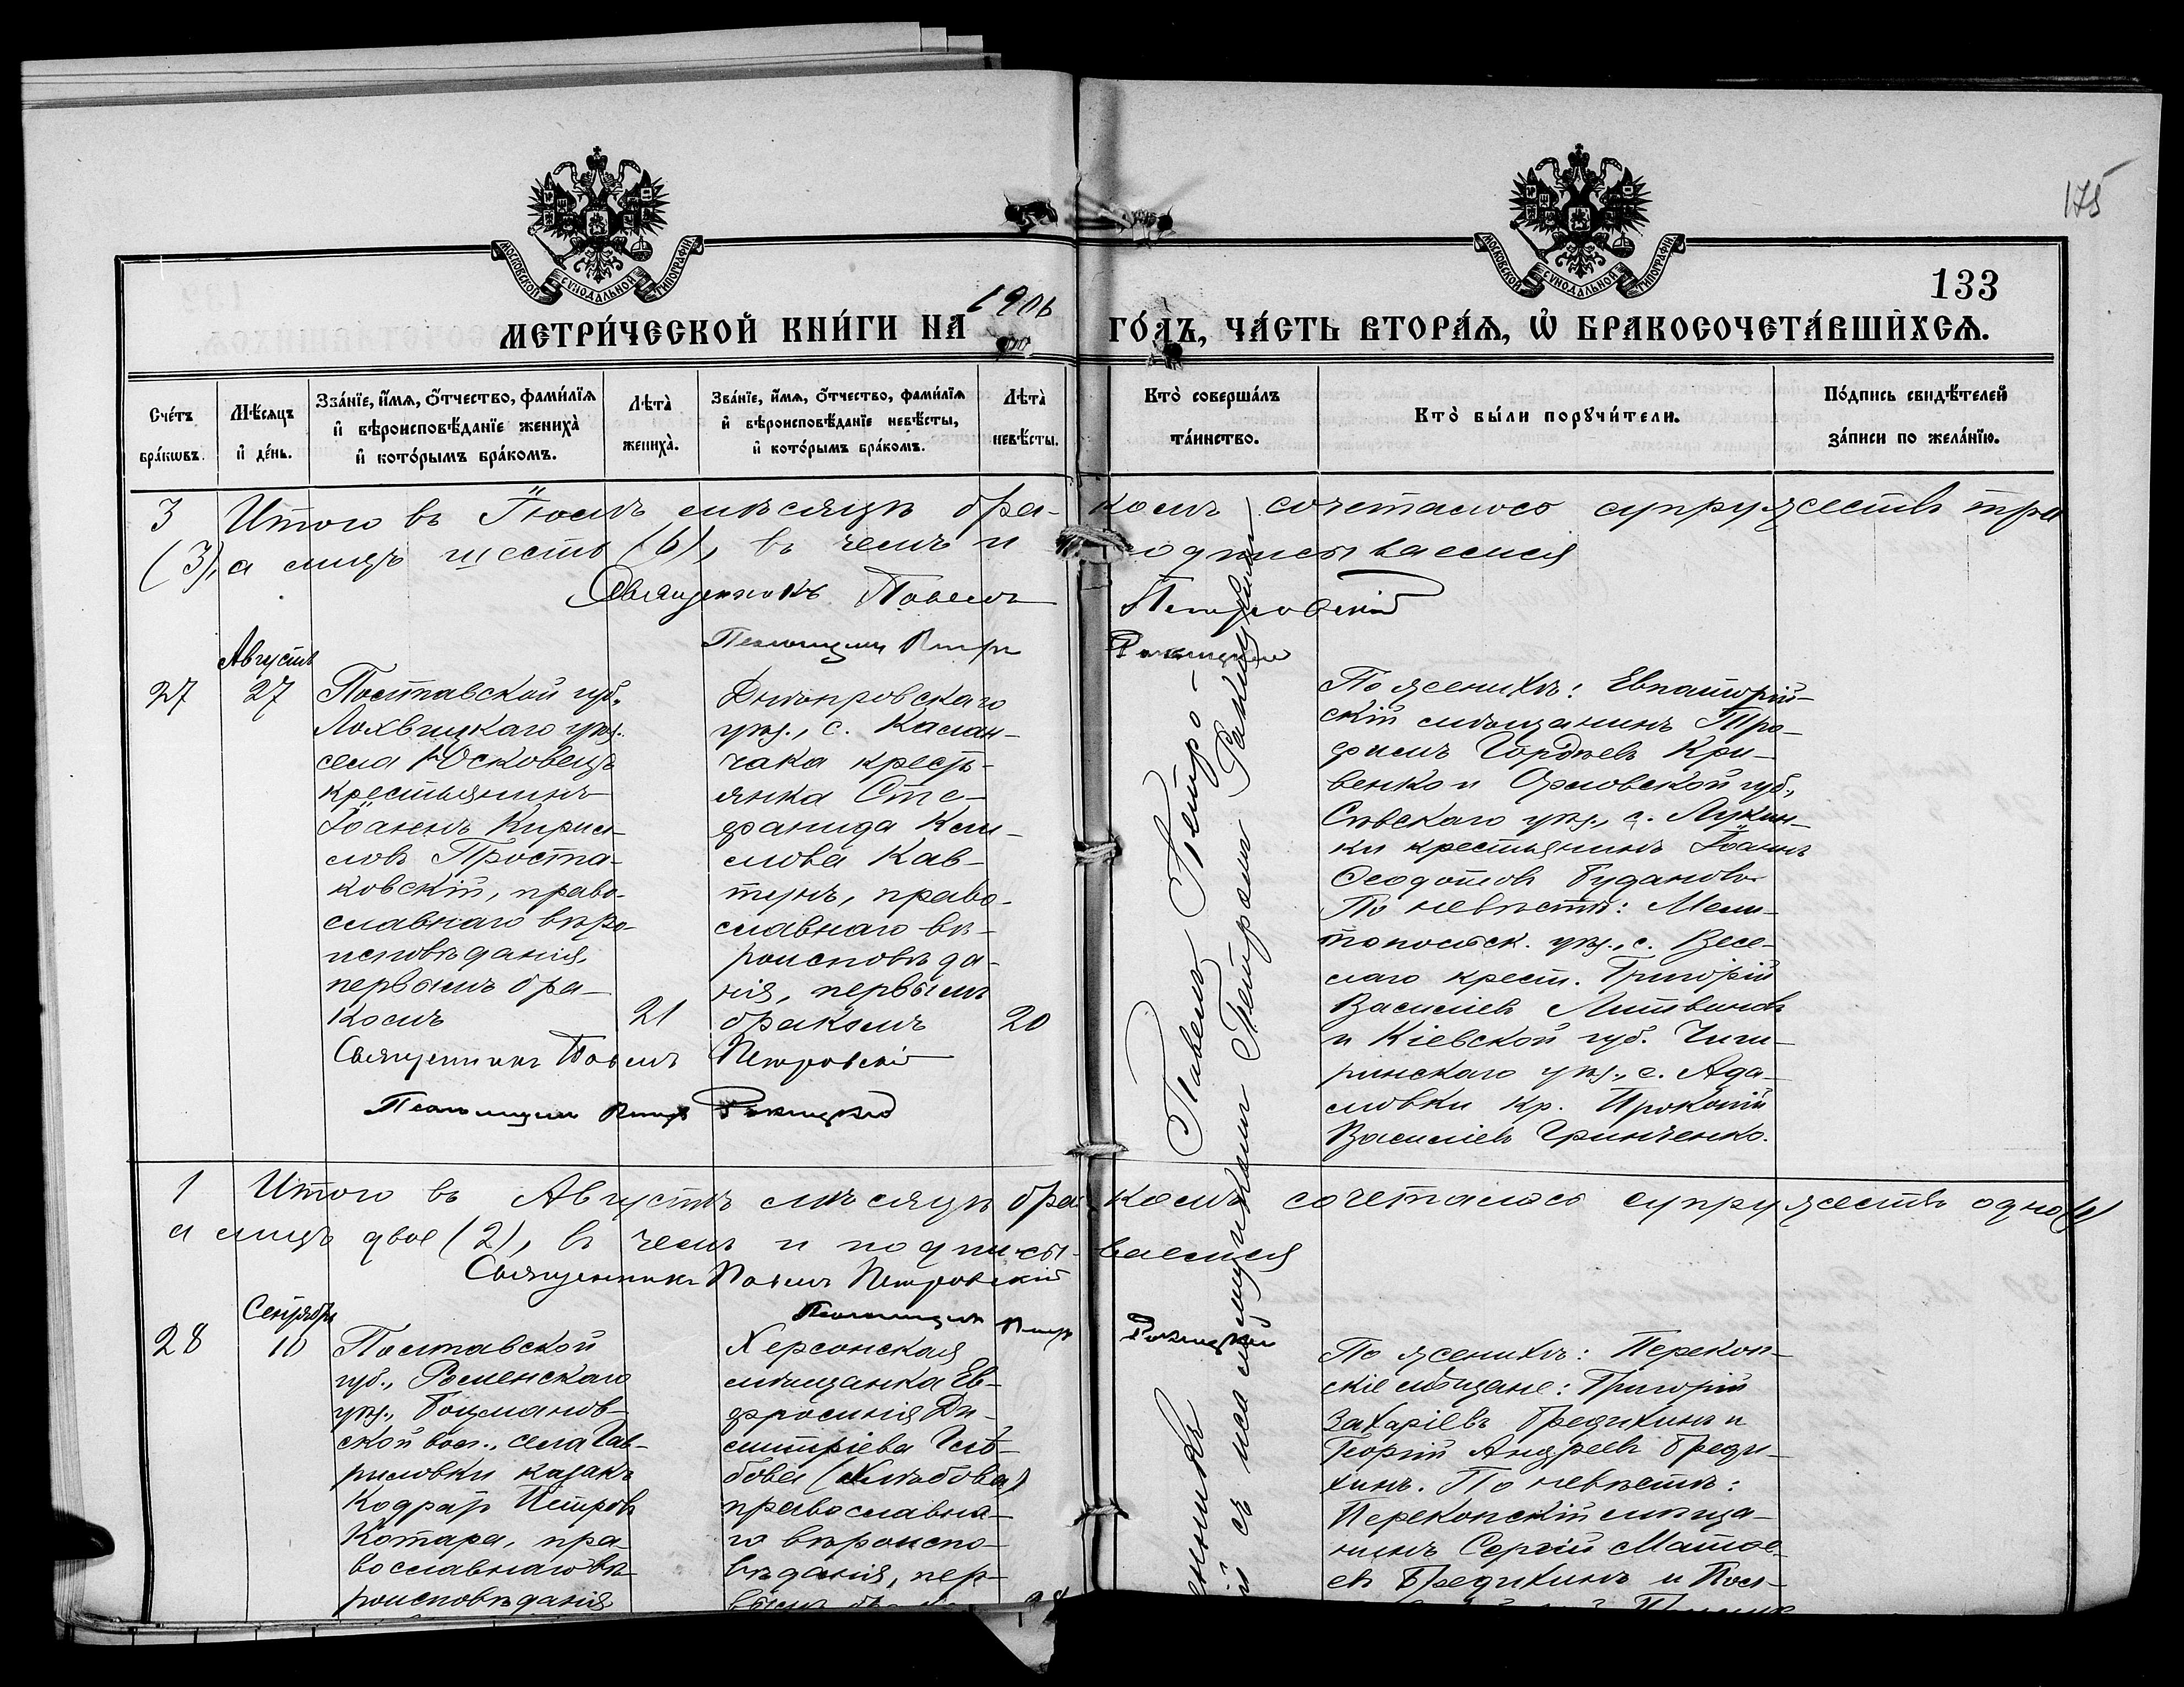 175
МОСКОВСКОЙ СУНОДАЛЬНОЙ ТИПОГРАФІИ
МОСКОВСКОЙ СУНОДАЛЬНОЙ ТИПОГРАФІИ
133
МЕТРИ́ЧЕСКОЙ КНИ́ГИ НА 1906 ГО́ДЪ, ЧА́СТЬ ВТОРА́Ѧ, Ѽ БРАКОСОЧЕТА́ВШИХСѦ.
Сче́тъ бра́кѡвъ.
Мѣ́сѧцъ и҆ де́нь.
Зва́нїе, и҆́мѧ, ѻ҆́тчество, фамі́лїѧ
и҆ вѣроисповѣ́данїе жениха̀
и҆ кото́рымъ бра́комъ.
Лѣта̀ жениха̀.
Зва́нїе, и҆́мѧ, ѻ҆́тчество, фамі́лїѧ
и҆ вѣроисповѣ́данїе невѣ́сты,
и҆ кото́рымъ бра́комъ.
Лѣта̀ невѣ́сты.
Кто̀ соверша́лъ
та́инство.
Кто̀ бы́ли порꙋчи́тели.
По́дпись свидѣ́телей
за́писи по жела́нїю.
3 Итого въ Іюлѣ мѣсяцѣ бракомъ сочеталось супружествъ три
(3), а лицъ шесть (6), въ чемъ и подписываемся
Священникъ Павелъ Петровскій
Псаломщикъ Петръ Ракицкій
Августъ
27 27
Полтавской губ.,
Лохвицкаго уѣз.
села Юсковецъ
крестьянинъ
Іоаннъ Кирил-
ловъ Проста-
ковскій, право-
славнаго вѣро-
исповѣданія,
первымъ бра-
комъ
21
Днѣпровскаго
уѣз., с. Калан-
чака кресть-
янка Сте-
фанида
Кав-
тунъ, право-
славнаго вѣ-
роисповѣда-
нія, первымъ
бракомъ
20
По женихѣ: Евпаторій-
скій мѣщанинъ Тро-
фимъ Гордѣевъ Кри-
венко и Орловской губ.,
Сѣвскаго уѣз., с. Лукин-
ки крестьянинъ Іоаннъ
Ѳеодотовъ Будановъ
По невѣстѣ: Мели-
топольск. уѣз., с. Весе-
лаго крест. Григорій
Василіевъ Литвиновъ
и Кіевской губ. Чиги-
ринскаго уѣз., с. Ада-
мовки кр. Прокопій
Василіевъ Гринченко.
Священникъ Павелъ Петровскій
Псаломщикъ Петръ Ракицкій
1 Итого въ Августѣ мѣсяцѣ бракомъ сочеталось супружествъ одно (1)
а лицъ двое (2), въ чемъ и подписываемся
Священникъ Павелъ Петровскій
Псаломщикъ Петръ Ракицкій
Сентябрь
28 10
Полтавской
губ., Роменскаго
уѣз., Боцманов-
ской вол., села Гав-
риловки казакъ
Кодратъ Петровъ
Котара, пра-
вославнаго вѣ-
роисповѣданія
Херсонская
мѣщанка Ев-
фросинія Ди-
митріева Глѣ-
бова (Хлѣбова)
православна-
го вѣроиспо-
вѣданія, пер-
По женихѣ: Перекоп-
скіе мѣщане: Григорій
Захаріевъ Бредихинъ и
Георгій Андреевъ Бреди-
хинъ. По невѣстѣ:
Перекопскій мѣща-
нинъ Сергій Матѳе-
евъ Бредихинъ и Пол-
Павелъ Петро-
съ псаломщикомъ Петромъ Ракицкимъ